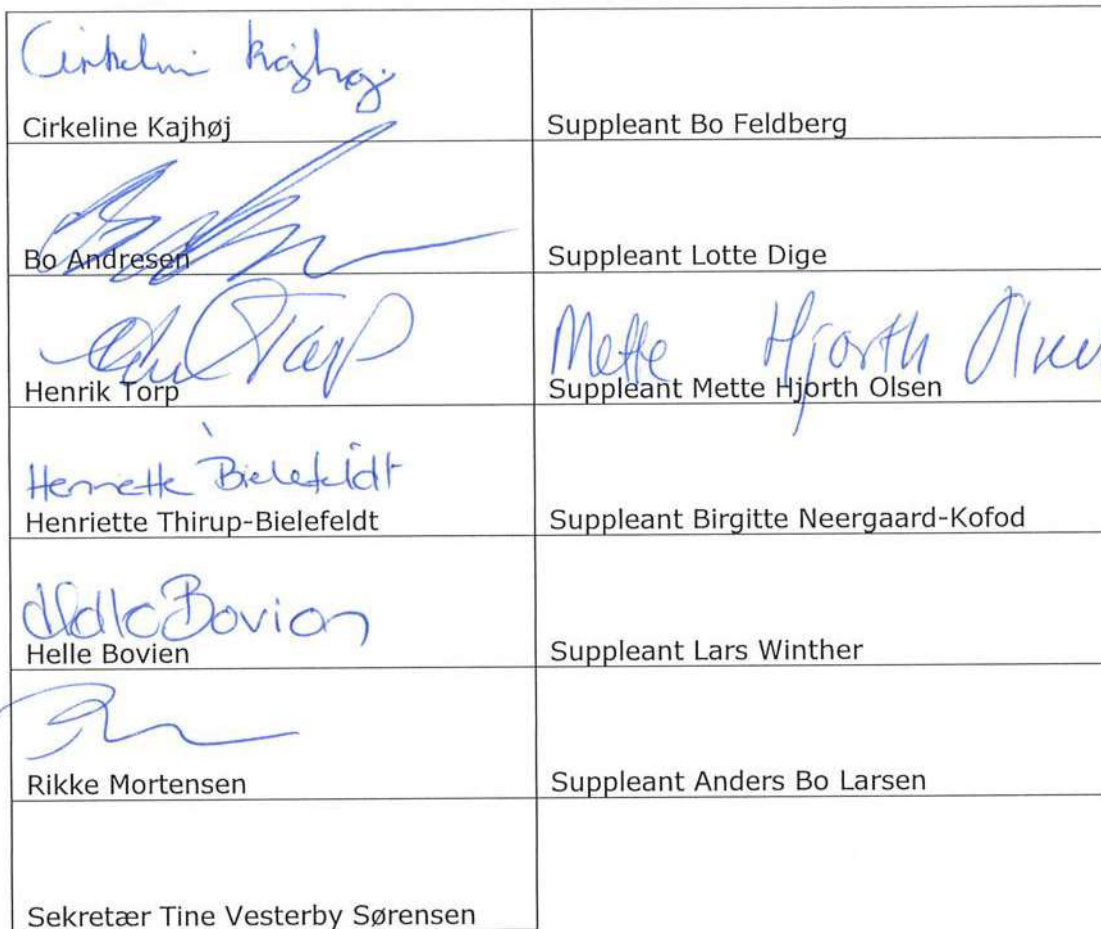 Cirkeline Kajhøj
Cirkeline Kajhøj
Suppleant Bo Feldberg
Bo Andresen
Suppleant Lotte Dige
Torp
Henrik Torp
Mette Hjorth Olsen
Suppleant Mette Hjorth Olsen
Henriette Bielefeldt
Henriette Thirup-Bielefeldt
Suppleant Birgitte Neergaard-Kofod
Helle Bovien
Helle Bovien
Suppleant Lars Winther
Rikke Mortensen
Suppleant Anders Bo Larsen
Sekretær Tine Vesterby Sørensen